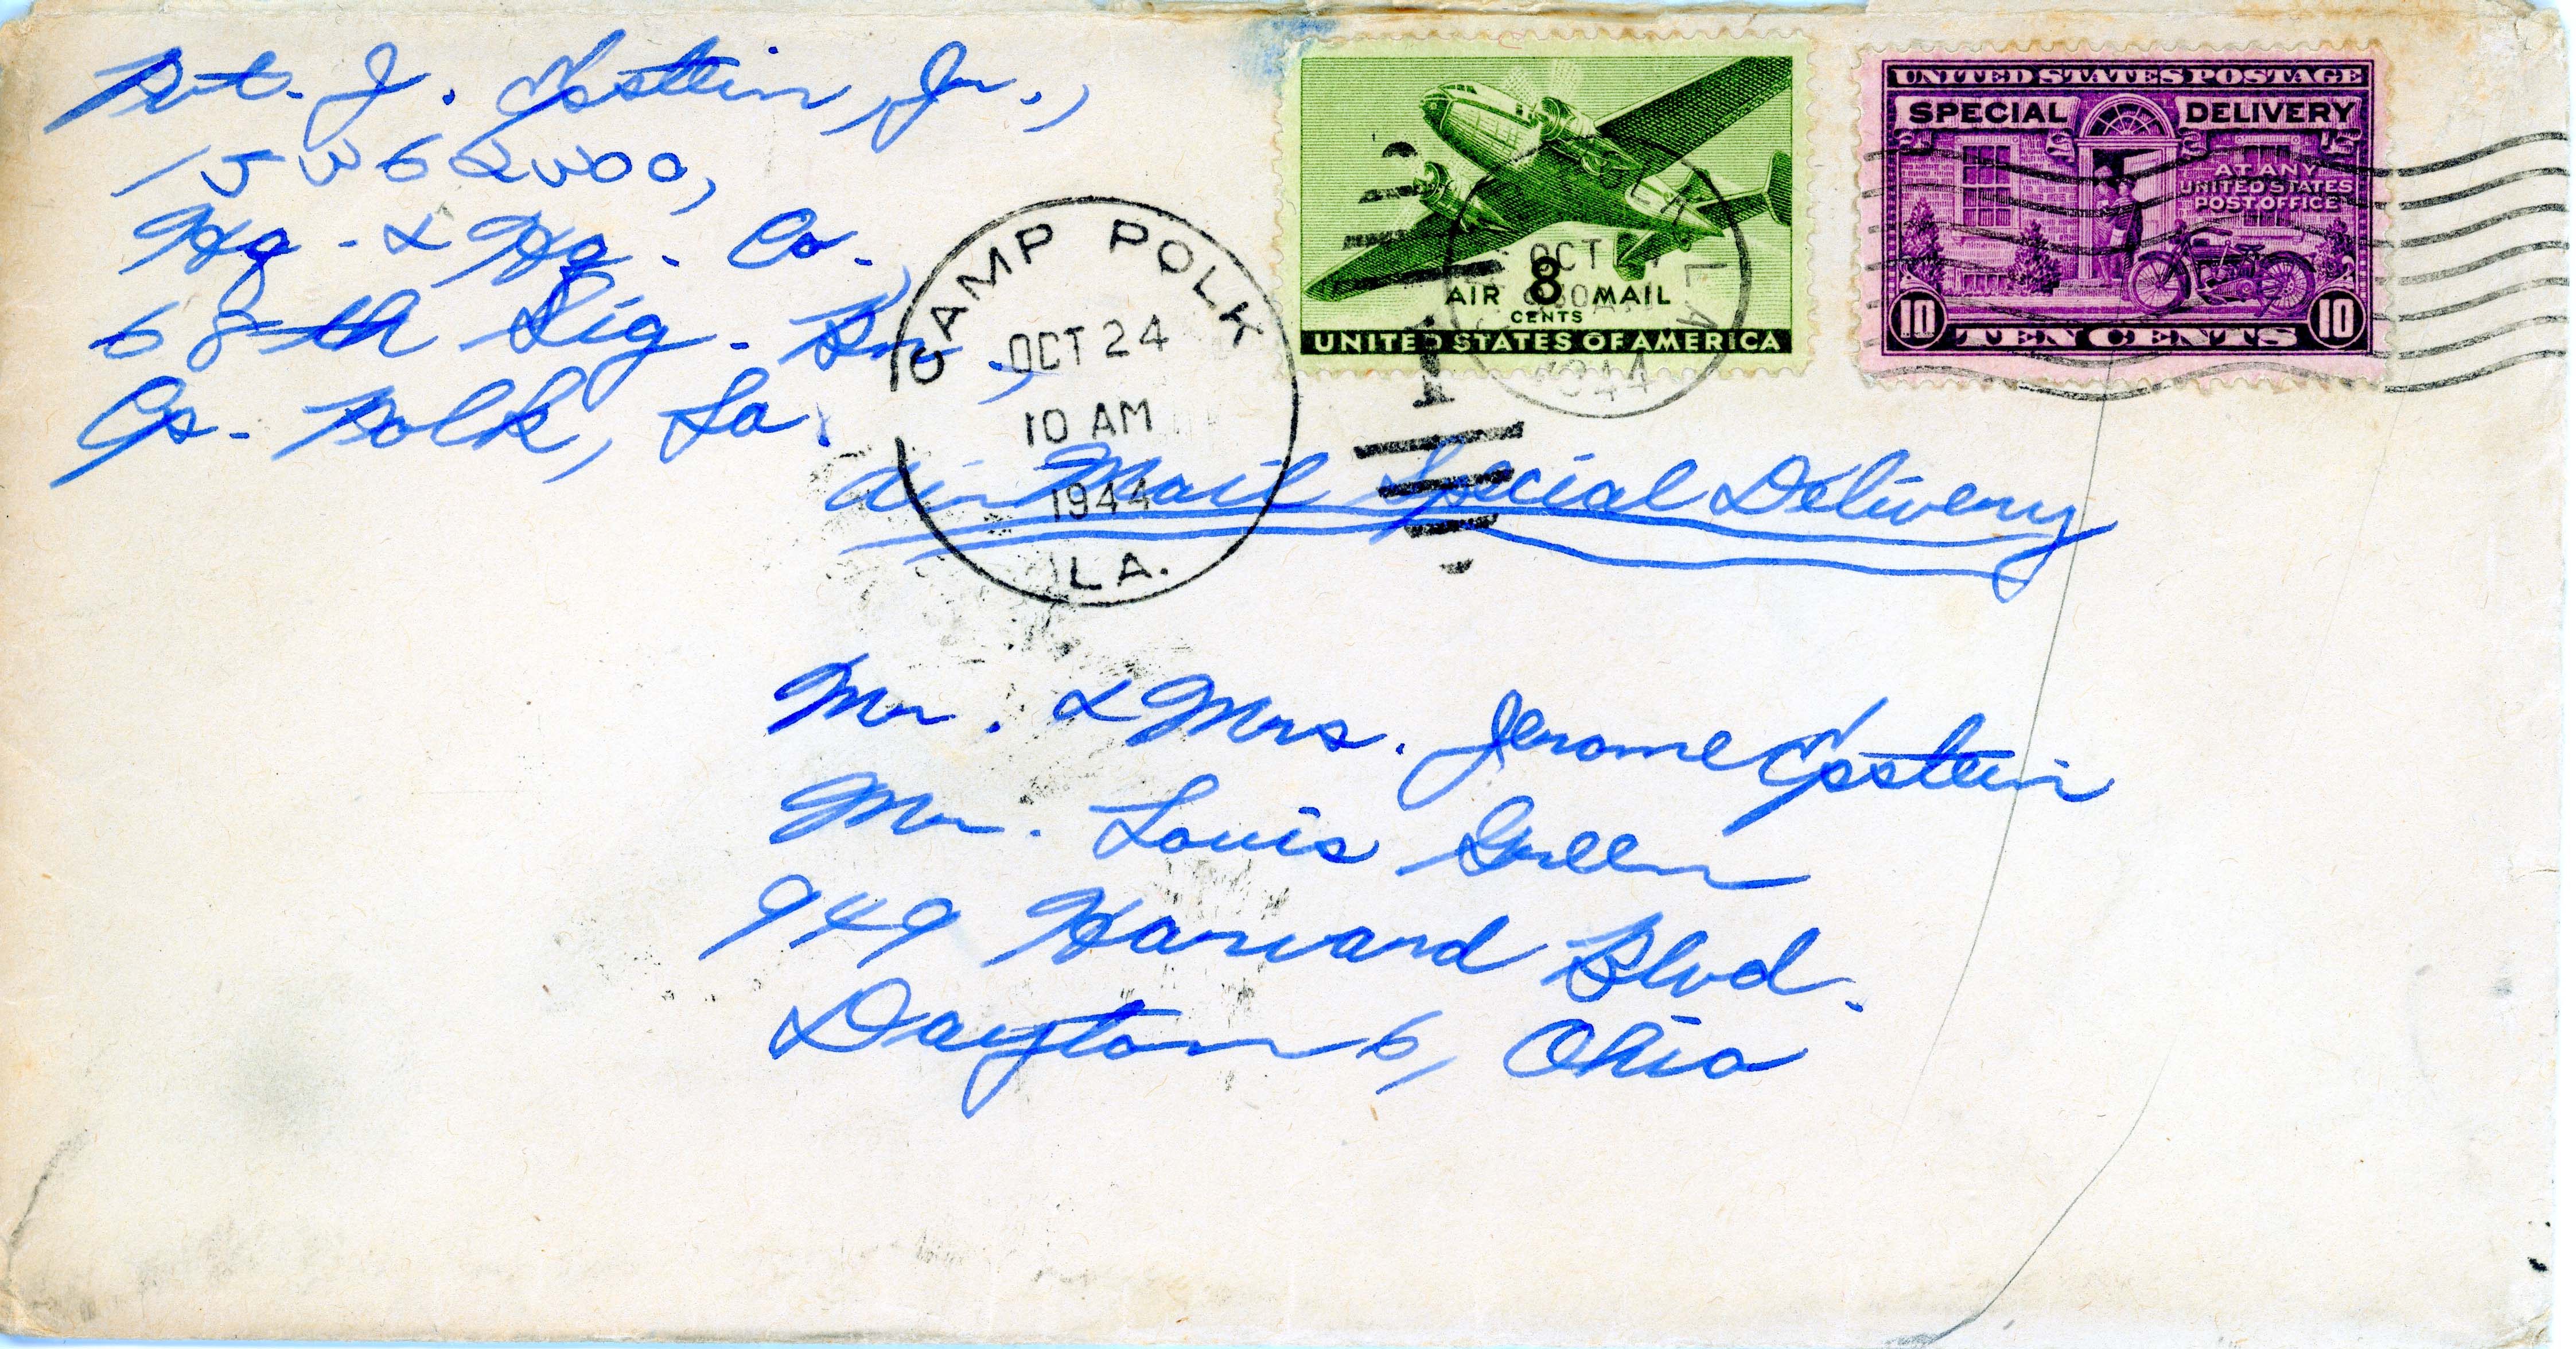 Pvt. J. Epstein, Jr.,
Hq. & Hq. Co.,
68th Sig. Bn.,
Cp. Polk, La.
CAMP POLK
OCT 24
10 AM
1944
LA.
1
AIR 8 MAIL
CENTS
UNITED STATES OF AMERICA
OCT
LA
1944
UNITED STATES POSTAGE
SPECIAL DELIVERY
AT ANY
UNITED STATES
POST OFFICE
10 TEN CENTS 10
Air Mail Special Delivery
Mr. & Mrs. Jerome Epstein
Mr. Louis Green
949 Harvard Blvd.
Dayton 6, Ohio